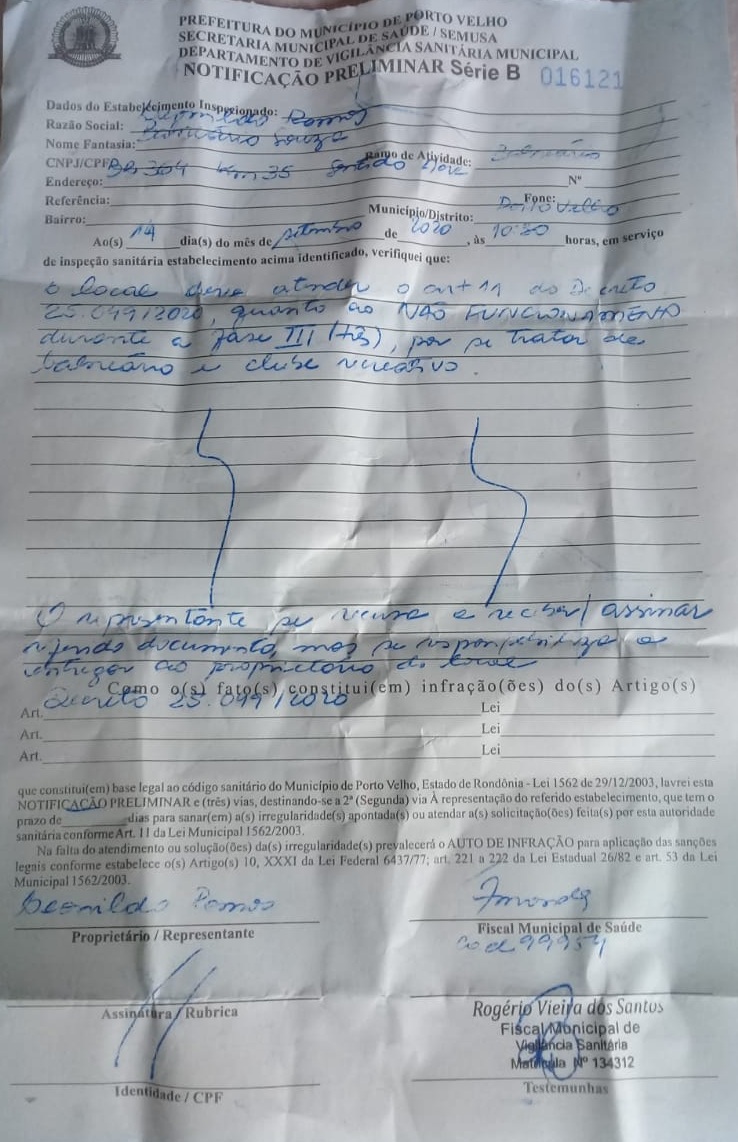 PREFEITURA DO MUNICÍPIO DE PORTO VELHO
SECRETARIA MUNICIPAL DE SAÚDE / SEMUSA
DEPARTAMENTO DE VIGILÂNCIA SANITÁRIA MUNICIPAL
NOTIFICAÇÃO PRELIMINAR Série B 016121
Dados do Estabelecimento Inspecionado:
Razão Social: Ramos
Nome Fantasia: Balneário Souza
CNPJ/CPF: Ramo de Atividade: Balneário
Endereço: BR 364 Km 35 Sentido Nº
Referência: Fone:
Bairro: Município/Distrito: Porto Velho
Ao(s) 14 dia(s) do mês de setembro de 2020, às 10:20 horas, em serviço
de inspeção sanitária estabelecimento acima identificado, verifiquei que:
o local deve atender o art 11 do Decreto
25.049/2020, quanto ao NÃO FUNCIONAMENTO
durante a fase III (três), por se tratar de
balneário e clube recreativo.
O representante se recusa a receber/assinar
referido documento, mas se responsabiliza a
entregar ao proprietário do local
Como o(s) fato(s) constitui(em) infração(ões) do(s) Artigo(s)
Decreto 25.049/2020
Art. Lei
Art. Lei
Art. Lei
que constitui(em) base legal ao código sanitário do Município de Porto Velho, Estado de Rondônia - Lei 1562 de 29/12/2003, lavrei esta
NOTIFICAÇÃO PRELIMINAR e (três) vias, destinando-se a 2ª (Segunda) via À representação do referido estabelecimento, que tem o
prazo de dias para sanar(em) a(s) irregularidade(s) apontada(s) ou atender a(s) solicitação(ões) feita(s) por esta autoridade
sanitária conforme Art. 11 da Lei Municipal 1562/2003.
Na falta do atendimento ou solução(ões) da(s) irregularidade(s) prevalecerá o AUTO DE INFRAÇÃO para aplicação das sanções
legais conforme estabelece o(s) Artigo(s) 10, XXXI da Lei Federal 6437/77; art. 221 a 222 da Lei Estadual 26/82 e art. 53 da Lei
Municipal 1562/2003.
Ramos
Proprietário / Representante
Fiscal Municipal de Saúde
cod 99954
Assinatura / Rubrica
Rogério Vieira dos Santos
Fiscal Municipal de
Vigilância Sanitária
Matrícula Nº 134312
Identidade / CPF
Testemunhas